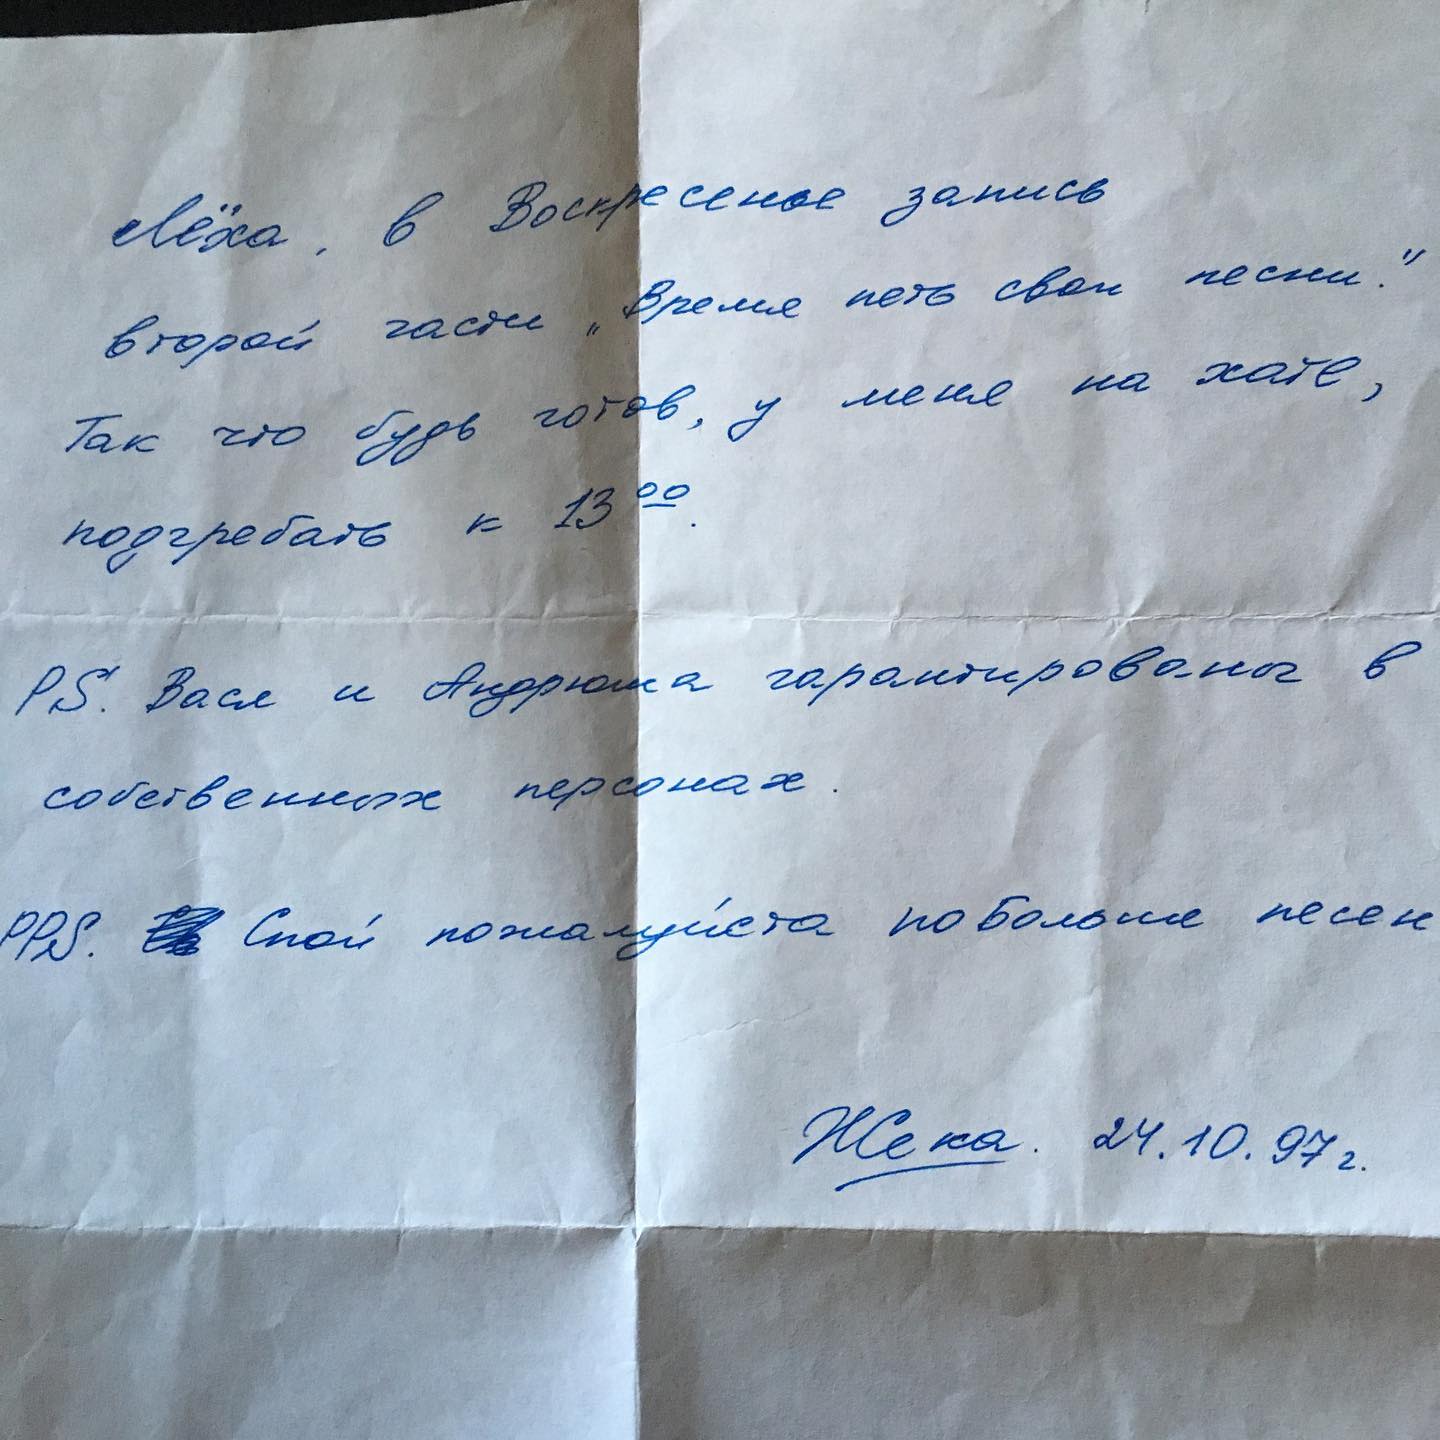 Лёха, в Воскресенье запись
второй части „Время петь свои песни."
Так что будь готов, у меня на хате,
подгребать к 13 00.
PS. Вася и Андрюша гарантированы в
собственных персонах.
PPS. Спой пожалуйста побольше песен
Жека. 24.10.97г.